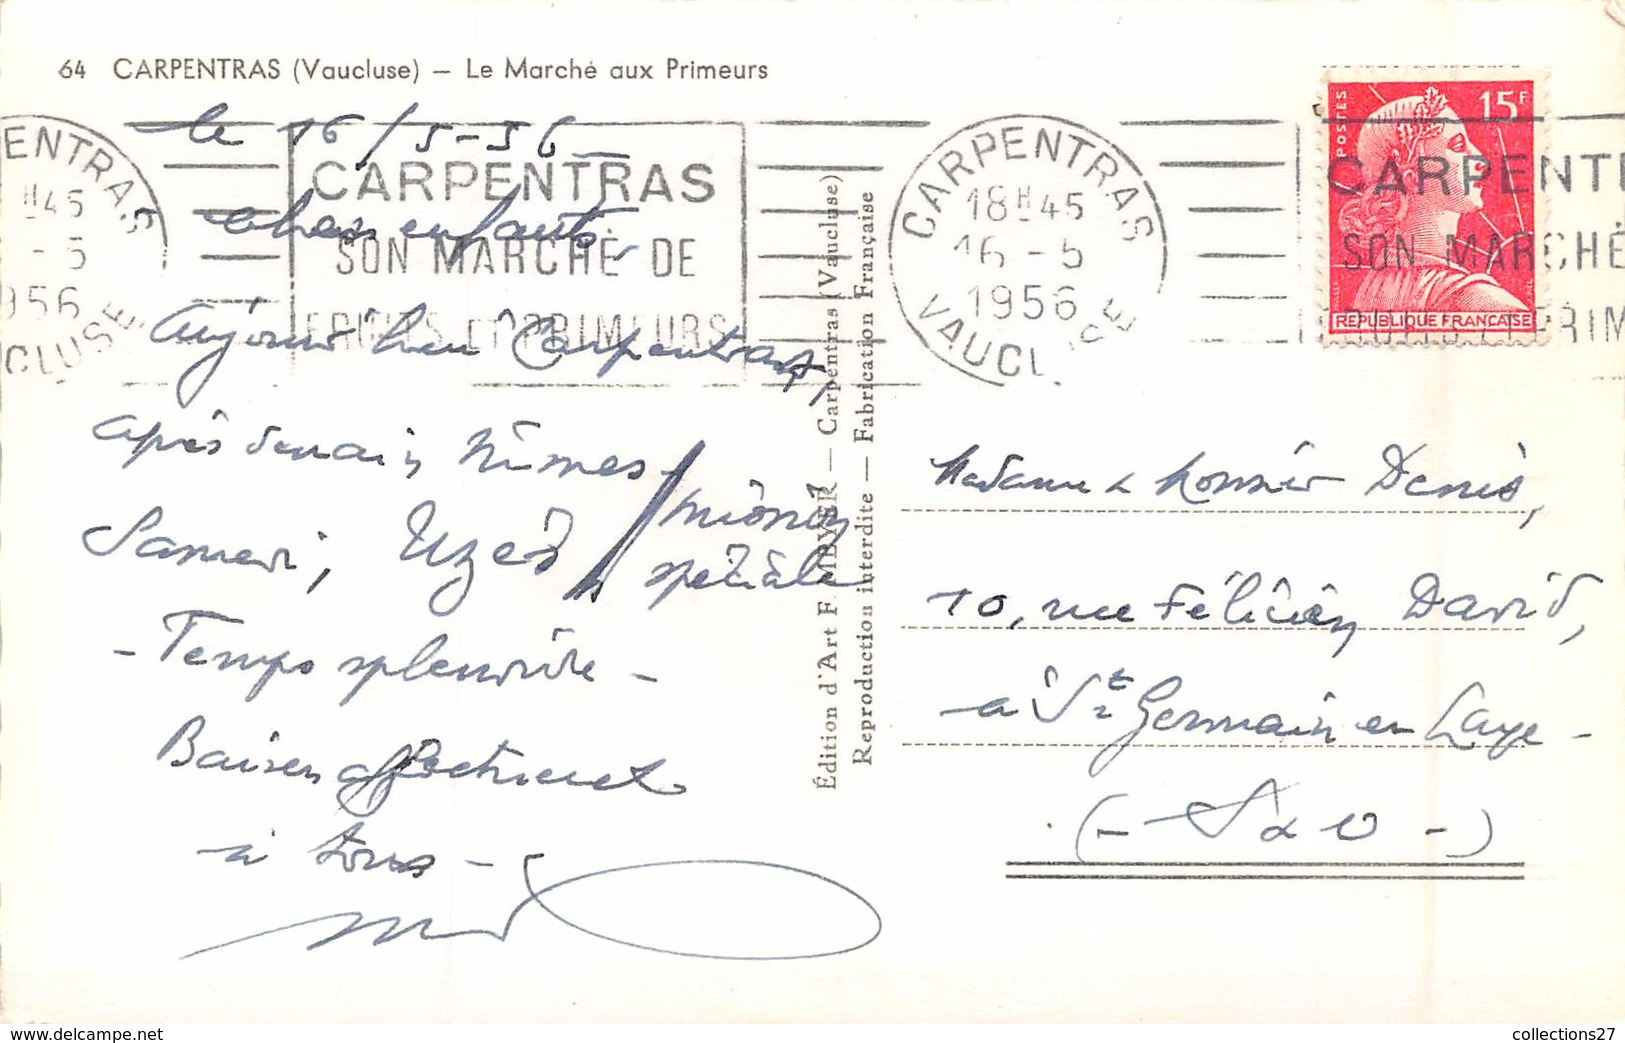 64 CARPENTRAS (Vaucluse) — Le Marché aux Primeurs
le 16/5-56
Chers enfants,
Aujourd'hui Carpentras,
après demain Nîmes
Samedi, Uzès
spéciale
- Temps splendide -
Baisers affectueux
à tous -
ENTRAS
H45
- 5
956
CLUSE
CARPENTRAS
SON MARCHÉ DE
FRUITS ET PRIMEURS
Édition d'Art F. MEYER — Carpentras (Vaucluse)
Reproduction interdite — Fabrication Française
CARPENTRAS
18H45
16 - 5
1956
VAUCLUSE
POSTES
15F
REPUBLIQUE FRANÇAISE
CARPENT
SON MARCHÉ
FRUITS ET PRIM
Madame & Monsieur Denis,
10, rue Félicien David,
à St Germain en Laye -
(- S & O -)
collections27